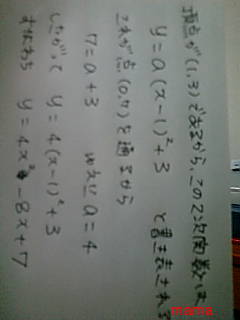 頂点が(1,3)であるから、この2次関数は
y=a(x-1)²+3 と書き表される
これが点(0,7)を通るから
7=a+3 ゆえにa=4
したがって y=4(x-1)²+3
すなわち y=4x²-8x+7